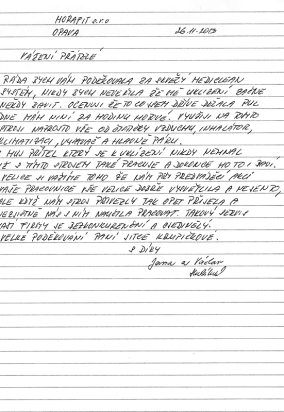 HORAPIT s.r.o
OPAVA 26.11.2013
VÁŽENÍ PŘÁTELÉ
RÁDA BYCH VÁM PODĚKOVALA ZA SKVĚLÝ MEDICLEAN
SYSTÉM, NIKDY BYCH NEVĚŘILA ŽE MĚ UKLÍZENÍ ZAČNE
NĚKDY BAVIT. OCENUJI ŽE TO CO JSEM DŘÍVE DĚLALA PŮL
DNE MÁM NYNÍ ZA HODINU HOTOVÉ. VYUŽIJI NA TOMTO
STROJI NAPROSTO VŠE OD ČISTIČKY VZDUCHU, INHALÁTOR,
KLIMATIZACI, VYSAVAČ A HLAVNĚ PÁRU.
MŮJ PŘÍTEL KTERÝ SE K UKLÍZENÍ NIKDY NEMĚL
S TÍMTO STROJEM TAKÉ PRACUJE A DOKONCE HO TO I BAVÍ.
VELICE SI VÁŽÍME TOHO ŽE NÁM PŘI PŘEDVÁDĚCÍ AKCI
VAŠE PRACOVNICE VŠE VELICE DOBŘE VYSVĚTLILA A
ALE KDYŽ NÁM STROJ PŘIVEZLI TAK OPĚT PŘIJELA A
NÁS S NÍM NAUČILA PRACOVAT. TAKOVÝ SERVIS
FIRMY JE BEZKONKURENČNÍ A OJEDINĚLÝ.
VELKÉ PODĚKOVÁNÍ PANÍ JITCE KRUPIČKOVÉ.
S DÍKY
Jana a Václav